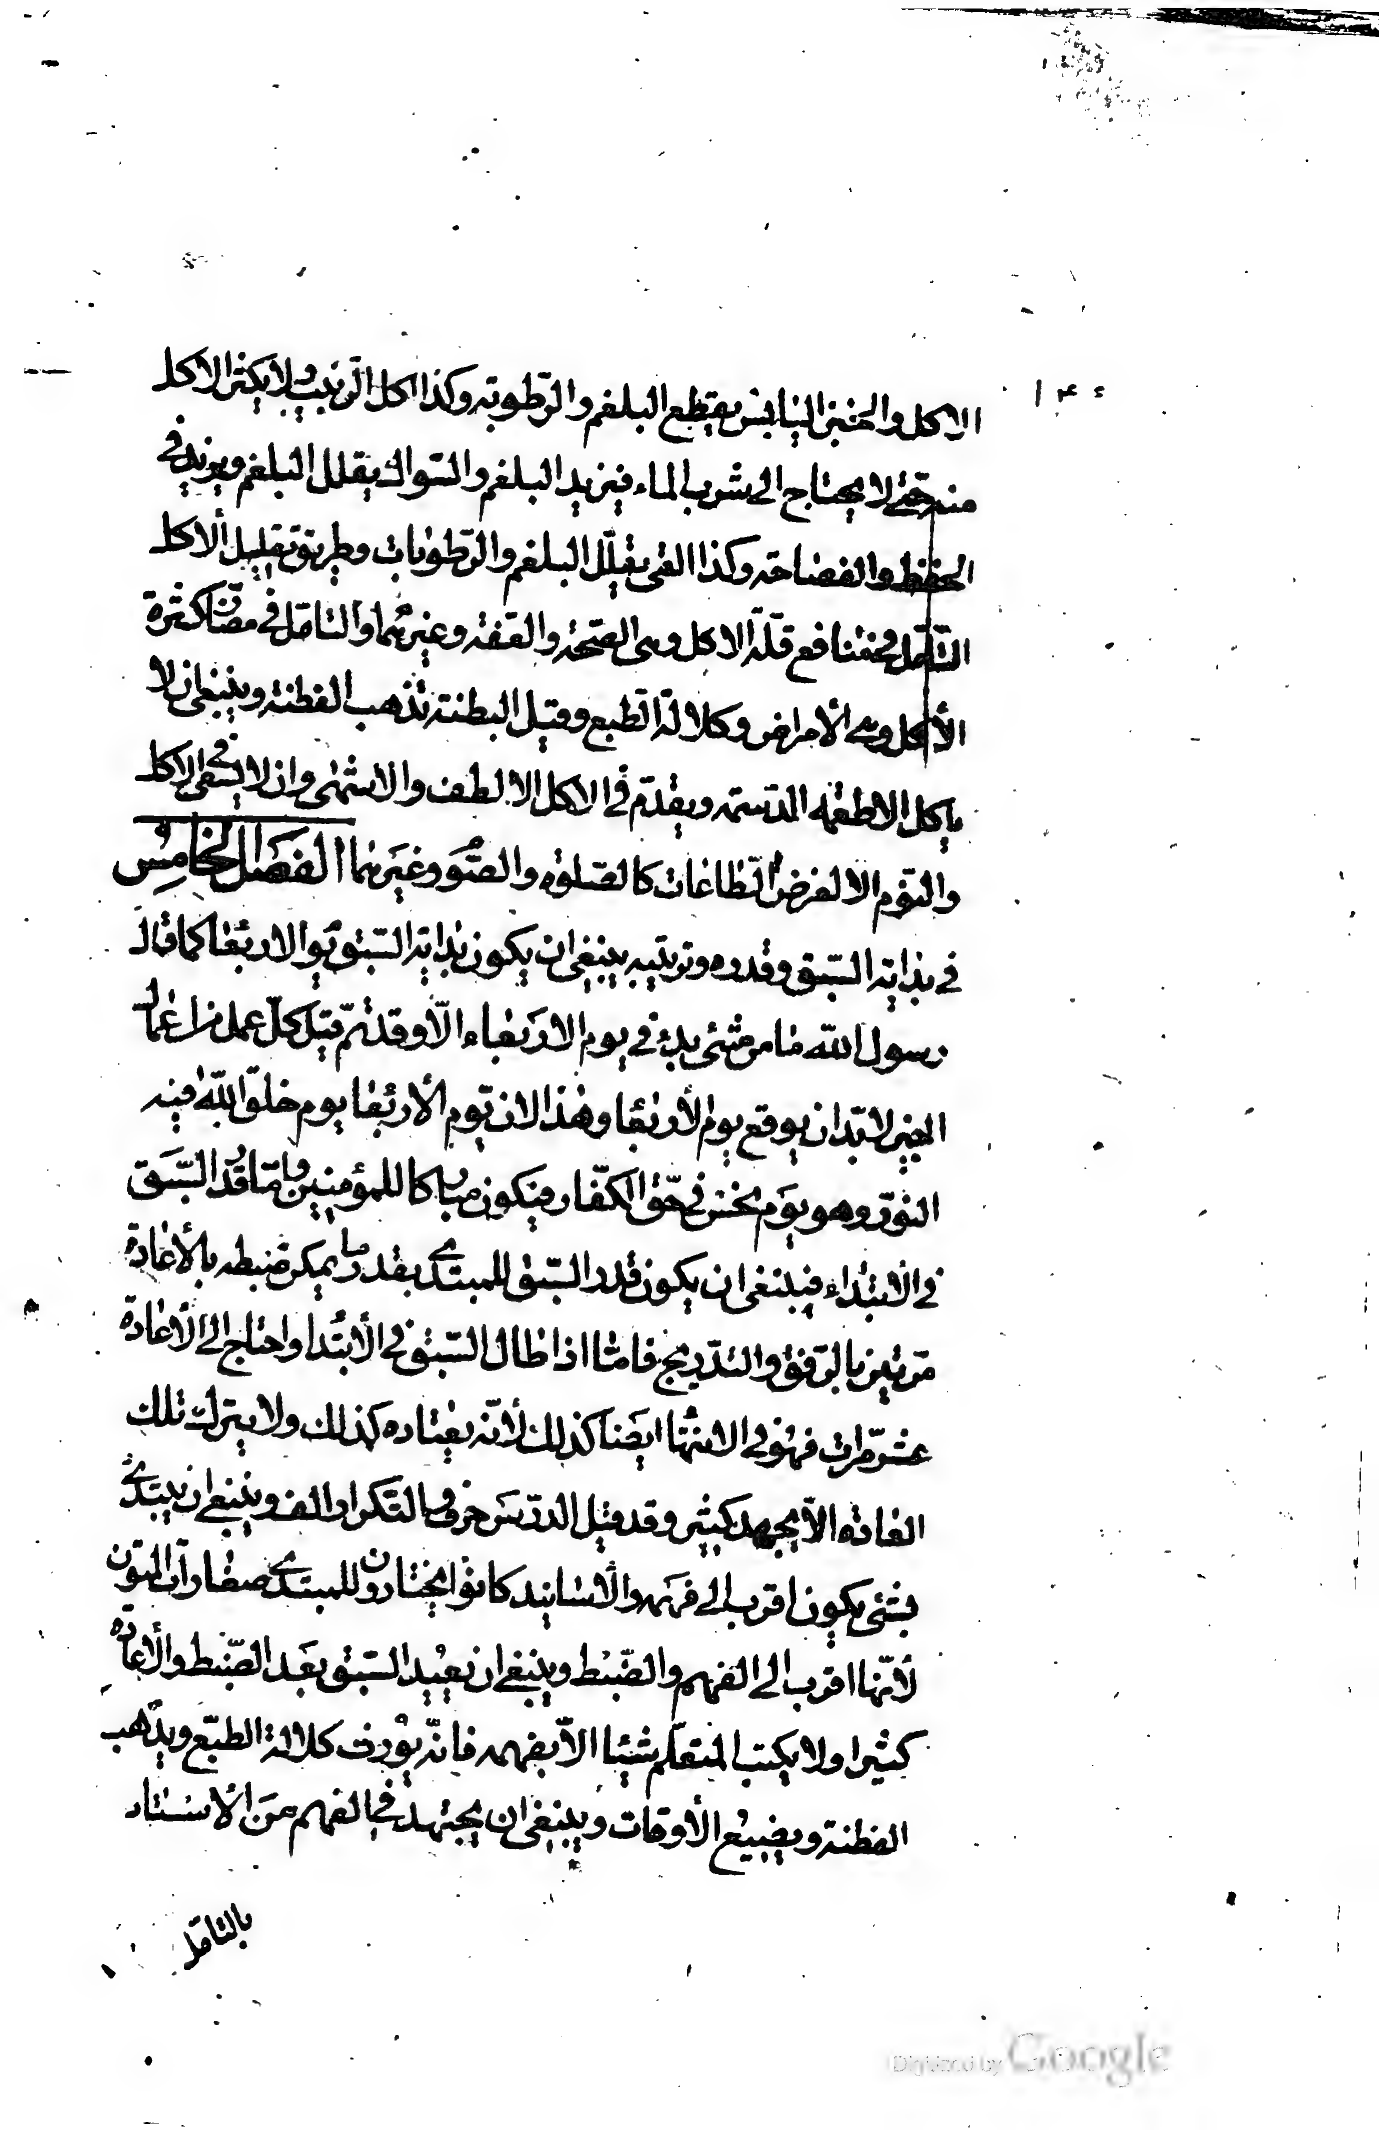 ١٣٤
الاكل والخبز اليابس يقطع البلغم والرطوبة وكذا اكل الزبيب ولا يكثر الاكل
منه حتى لا يحتاج الى شرب الماء فيزيد البلغم والسواك يقلل البلغم ويزيد في
الحفظ والفصاحة وكذا القى يقلّل البلغم والرّطوبات وطريق تقليل الاكل
التأمّل في منافع قلّة الاكل وهى الصحة والعفة وغيرهما والتامّل في مضّار كثرة
الأكل وهي الأمراض وكلالة الطبع وقيل البطنة تذهب الفطنة وينبغى ان لا
ياكل الاطعمة الدسمة ويقدّم في الاكل الالطف والاشهى وان لا يسعى في الاكل
والنوم الا لغرض الطاعات كالصلوة والصوم وغيرهما الفصل الخامس
في بداية السبق وقدره وترتيبه ينبغى ان يكون بداية السبق يوم الاربعا كما قال
رسول الله ما من شئ بدء في يوم الاربعاء الّا وقد تمّ قيل كلّ عمل من اعمال
الخير لا بّد ان يوقع يوم الأربعا وهذا لان يوم الأربعا يوم خلق الله فيه
النّور وهو يوم نحس في حقّ الكفّار فيكون مباركا للمؤمنين وامّا قدر السّبق
في الابتداء فينبغى ان يكون قدر السّبق للمبتدى بقدر ما يمكن ضبطه بالأعادة
مرتين بالرّفق والتدريج فامّا اذا طال السّبق في الأبتدا واحتاج الى الأعادة
عشر مرات فهو في الانتها ايضا كذلك لأنّه يعتاده كذلك ولا يترك تلك
العادة الاّ بجهد كثير وقد قيل الدرس حرف والتكرار الف وينبغى ان يبتدى
بشئ يكون اقرب الى فهمه والأساتيد كانوا يختارون للمبتدى صغارات المتون
لأنّها اقرب الى الفهم والضّبط وينبغى ان يعيد السّبق بعد الضّبط والأعادة
كثيرا ولا يكتب المتعلّم شيئا الاّ يفهمه فانّه يورث كلالة الطبع ويذهب
الفطنة ويضييع الأوقات وينبغى ان يجتهد في الفهم عن الأستاد
بالتامل
Digitized by Google